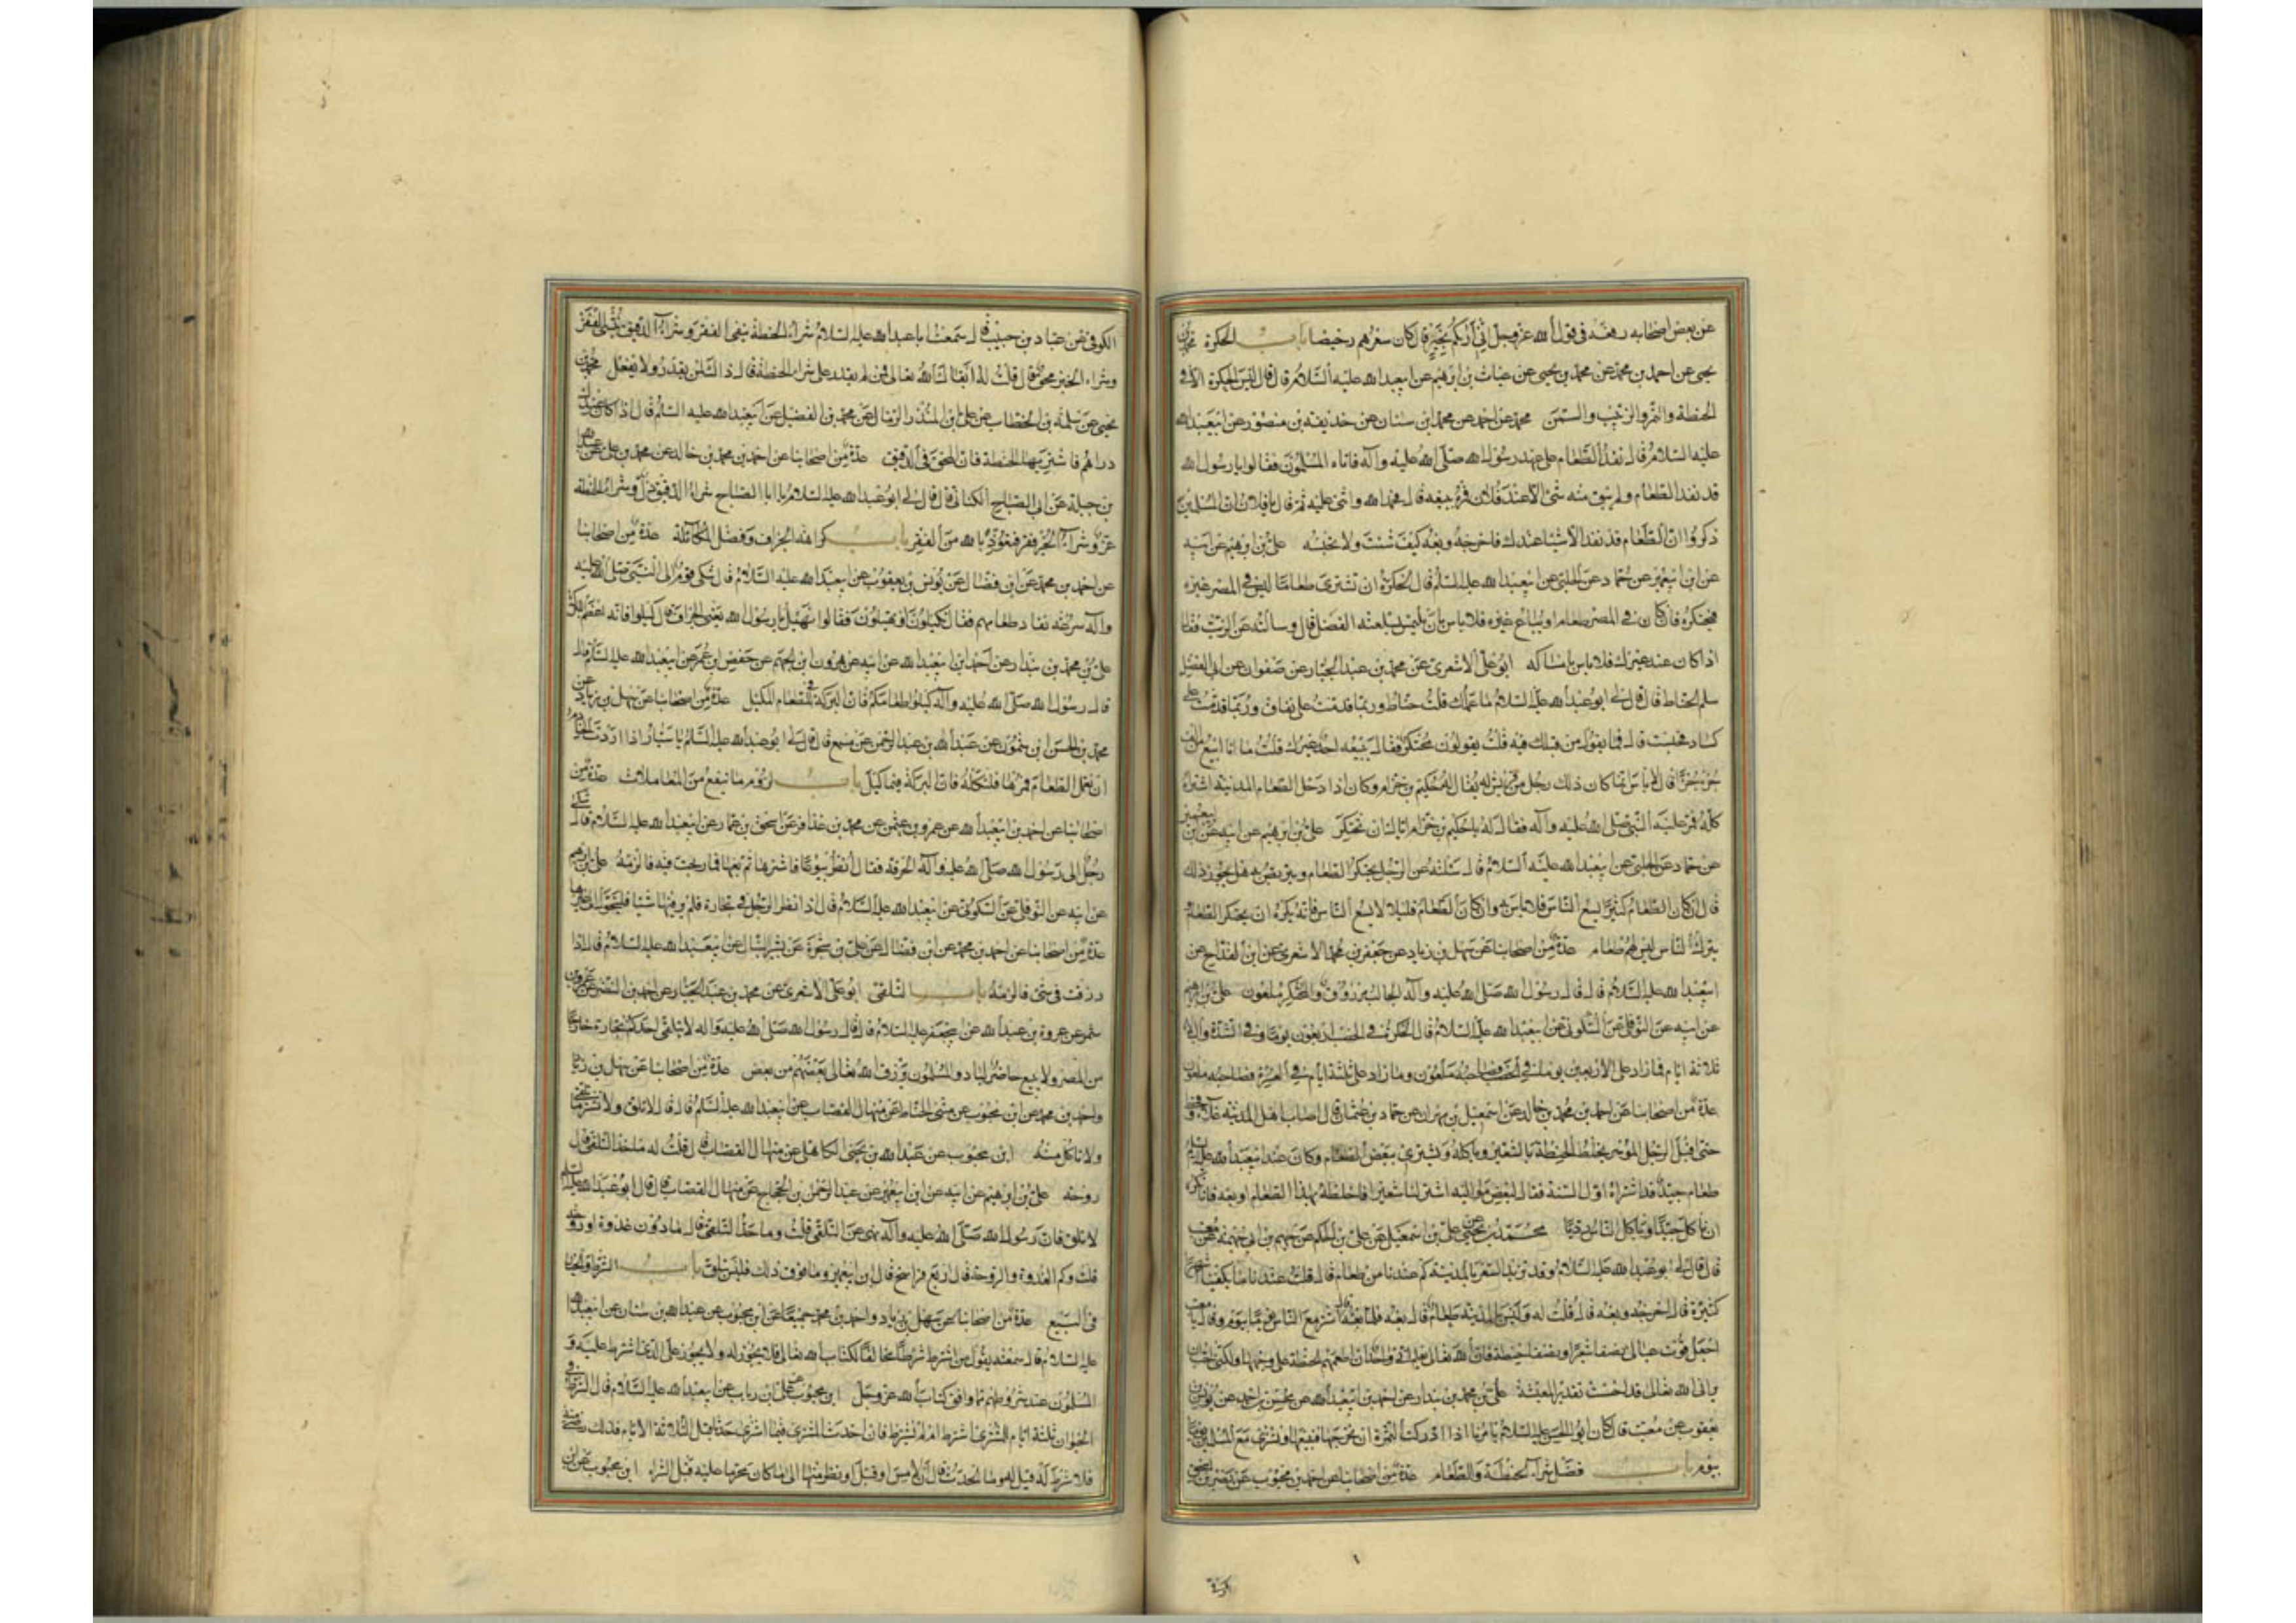 عن بعض اصحابه رفعه فى قول الله عز وجل انى اريكم بخير قال كان سعرهم رخيصا باب الحكرة محمد بن
يحيى عن احمد بن محمد عن محمد بن يحيى عن غياث بن ابرهيم عن ابيعبد الله عليه السلام قال قال ليس الحكرة الا فى
الحنطة والتمر والزبيب والسمن محمد عن احمد عن محمد بن سنان عن حذيفة بن منصور عن ابيعبد الله
عليه السلام قال نفد الطعام على عهد رسول الله صلى الله عليه وآله فاتاه المسلمون فقالوا يا رسول الله
قد نفد الطعام ولم يبق منه شئ الا عند فلان فمره ببيعه قال فحمد الله واثنى عليه ثم قال يا فلان ان المسلمين
ذكروا ان الطعام قد نفد الا شيئا عندك فاخرجه وبعه كيف شئت ولا تحبسه على بن ابرهيم عن ابيه
عن ابن ابيعمير عن حماد عن الحلبى عن ابيعبد الله عليه السلام قال الحكرة ان تشترى طعاما ليس فى المصر غيره
فيحتكره فان كان فى المصر طعام او يباع غيره فلا باس بان يلتمس بسلعته الفضل قال وسالته عن الزيت فقال
اذا كان عند غيرك فلا باس بامساكه ابو على الاشعرى عن محمد بن عبد الجبار عن صفوان عن ابى الفضل
سلم الحناط قال قال لى ابو عبد الله عليه السلام ما عملك قلت حناط وربما قدمت على نفاق وربما قدمت على
كساد فحبست قال فما يقول من قبلك فيه قلت يقولون محتكر فقال يبيعه احد غيرك قلت ما انا ابيع من الف
جزء جزءا قال لا باس انما كان ذلك رجل من قريش له يقال له حكيم بن حزام وكان اذا دخل الطعام المدينة اشتراه
كله فمر عليه النبى صلى الله عليه وآله فقال له يا حكيم بن حزام اياك ان تحتكر على بن ابرهيم عن ابيه عن ابن ابيعمير
عن حماد عن الحلبى عن ابيعبد الله عليه السلام قال سئلته عن الرجل يحتكر الطعام ويتربص به هل يجوز ذلك
قال ان كان الطعام كثيرا يسع الناس فلا باس به وان كان الطعام قليلا لا يسع الناس فانه يكره ان يحتكر الطعام
ويترك الناس ليس لهم طعام عدة من اصحابنا عن سهل بن زياد عن جعفر بن محمد الاشعرى عن ابن القداح عن
ابيعبد الله عليه السلام قال قال رسول الله صلى الله عليه وآله الجالب مرزوق والمحتكر ملعون على بن ابرهيم
عن ابيه عن النوفلى عن السكونى عن ابيعبد الله عليه السلام قال الحكرة فى الخصب اربعون يوما وفى الشدة والبلاء
ثلاثة ايام فما زاد على الاربعين يوما فى الخصب فصاحبه ملعون وما زاد على ثلثة ايام فى العسرة فصاحبه ملعون
عدة من اصحابنا عن احمد بن محمد بن خالد عن اسمعيل بن مهران عن حماد بن عثمان قال اصاب اهل المدينة غلاء
حتى اقبل الرجل الموسر يخلط الحنطة بالشعير وياكله ويشترى ببعض الطعام وكان عند ابيعبد الله عليه السلام
طعام جيد قد اشتراه اول السنة فقال لبعض مواليه اشتر لنا شعيرا فاخلطه بهذا الطعام او بعه فانا نكره
ان ناكل جيدا وياكل الناس رديا محمد بن يحيى عن على بن اسمعيل عن على بن الحكم عن جهم بن ابى جهمة عن معتب
قال قال لى ابو عبد الله عليه السلام وقد تزيد السعر بالمدينة كم عندنا من طعام قال قلت عندنا ما يكفينا اشهر
كثيرة قال اخرجه وبعه قال قلت له وليس بالمدينة طعام قال بعه فلما بعته قال اشتر مع الناس يوما بيوم وقال يا معتب
اجعل قوت عيالى نصفا شعيرا ونصفا حنطة فان الله تعالى يعلم انى واجد ان اطعمهم الحنطة على وجهها ولكنى احب ان
يرانى الله تعالى قد احسنت تقدير المعيشة على بن محمد بن بندار عن احمد بن ابيعبد الله عن محسن بن احمد عن يونس بن
يعقوب عن معتب قال كان ابو الحسن عليه السلام يامرنا اذا ادركت الثمرة ان نخرجها فنبيعها ونشترى مع المسلمين يوما
بيوم باب فضل شراء الحنطة والطعام عدة من اصحابنا عن احمد بن محبوب عن نصر بن اسحق
الكوفى عن عباد بن حبيب قال سمعت ابا عبد الله عليه السلام شراء الحنطة ينفى الفقر وشراء الدقيق ينشئ الفقر
وشراء الخبز محق قال قلت له ابقاك الله تعالى فمن لم يقدر على شراء الحنطة قال ذاك لمن يقدر ولا يفعل محمد بن
يحيى عن سلمة بن الخطاب عن على بن المنذر الزبال عن محمد بن الفضيل عن ابيعبد الله عليه السلام قال اذا كان عندك
دراهم فاشتر بها الحنطة فان المحق فى الدقيق عدة من اصحابنا عن احمد بن محمد بن خالد عن محمد بن على عن عبد الله
بن جبلة عن ابى الصباح الكنانى قال قال لى ابو عبد الله عليه السلام يا ابا الصباح شراء الدقيق ذل وشراء الحنطة
عز وشراء الخبز فقر فنعوذ بالله من الفقر باب كراهة الجزاف وفضل المكائلة عدة من اصحابنا
عن احمد بن محمد عن ابن فضال عن يونس بن يعقوب عن ابيعبد الله عليه السلام قال شكى قوم الى النبى صلى الله عليه
وآله سرعة نفاد طعامهم فقال تكيلون او تهيلون فقالوا نهيل يا رسول الله يعنى الجزاف قال كيلوا فانه اعظم للبركة
على بن محمد بن بندار عن احمد بن ابيعبد الله عن ابيه عن هرون بن الجهم عن حفص بن عمر عن ابيعبد الله عليه السلام قال
قال رسول الله صلى الله عليه وآله كيلوا طعامكم فان البركة فى الطعام المكيل عدة من اصحابنا عن سهل بن زياد عن
محمد بن الحسن بن شمون عن عبد الله بن عبد الرحمن عن مسمع قال قال لى ابو عبد الله عليه السلام يا سيار اذا ارادت الخادم
ان تعمل الطعام فمرها فلتكله فان البركة فيما كيل باب لزوم ما ينفع من المعاملات عدة من
اصحابنا عن احمد بن ابيعبد الله عن عمرو بن عثمن عن محمد بن عذافر عن اسحق بن عمار عن ابيعبد الله عليه السلام قال شكى
رجل الى رسول الله صلى الله عليه وآله الحرفة فقال انظر بيوعا فاشترها ثم بعها فما ربحت فيه فالزمه على بن ابرهيم
عن ابيه عن النوفلى عن السكونى عن ابيعبد الله عليه السلام قال اذا نظر الرجل فى تجارة فلم ير فيها شيئا فليتحول الى غيرها
عدة من اصحابنا عن احمد بن محمد عن ابن فضال عن على بن شجرة عن بشير النبال عن ابيعبد الله عليه السلام قال اذا
رزقت فى شئ فالزمه باب التلقى ابو على الاشعرى عن محمد بن عبد الجبار عن احمد بن النضر عن عمرو بن
شمر عن عروة بن عبد الله عن ابيجعفر عليه السلام قال قال رسول الله صلى الله عليه واله لا يتلقى احدكم تجارة خارجا
من المصر ولا يبيع حاضر لباد والمسلمون يرزق الله تعالى بعضهم من بعض عدة من اصحابنا عن سهل بن زياد
واحمد بن محمد عن ابن محبوب عن مثنى الحناط عن منهال القصاب عن ابيعبد الله عليه السلام قال قال لا تلق ولا تشتر ما تلقى
ولا تاكل منه ابن محبوب عن عبد الله بن يحيى الكاهلى عن منهال القصاب قال قلت له ما حد التلقى قال
روحة على بن ابرهيم عن ابيه عن ابن ابيعمير عن عبد الرحمن بن الحجاج عن منهال القصاب قال قال ابو عبد الله عليه السلام
لا تلق فان رسول الله صلى الله عليه وآله نهى عن التلقى قلت وما حد التلقى قال ما دون غدوة او روحة
قلت وكم الغدوة والروحة قال اربع فراسخ قال ابن ابيعمير وما فوق ذلك فليس بتلق باب الشرط والخيار
فى البيع عدة من اصحابنا عن سهل بن زياد واحمد بن محمد جميعا عن ابن محبوب عن عبد الله بن سنان عن ابيعبد الله
عليه السلام قال سمعته يقول من اشترط شرطا مخالفا لكتاب الله تعالى فلا يجوز له ولا يجوز على الذى اشترط عليه و
المسلمون عند شروطهم مما وافق كتاب الله عز وجل ابن محبوب عن على بن رياب عن ابيعبد الله عليه السلام قال الشرط فى
الحيوان ثلثة ايام للمشترى اشترط ام لم يشترط فان احدث المشترى فيما اشترى حدثا قبل الثلاثة الايام فذلك رضى منه
فلا شرط له قيل له وما الحدث قال ان لامس او قبل او نظر منها الى ما كان يحرم عليه قبل الشراء ابن محبوب عن ابن